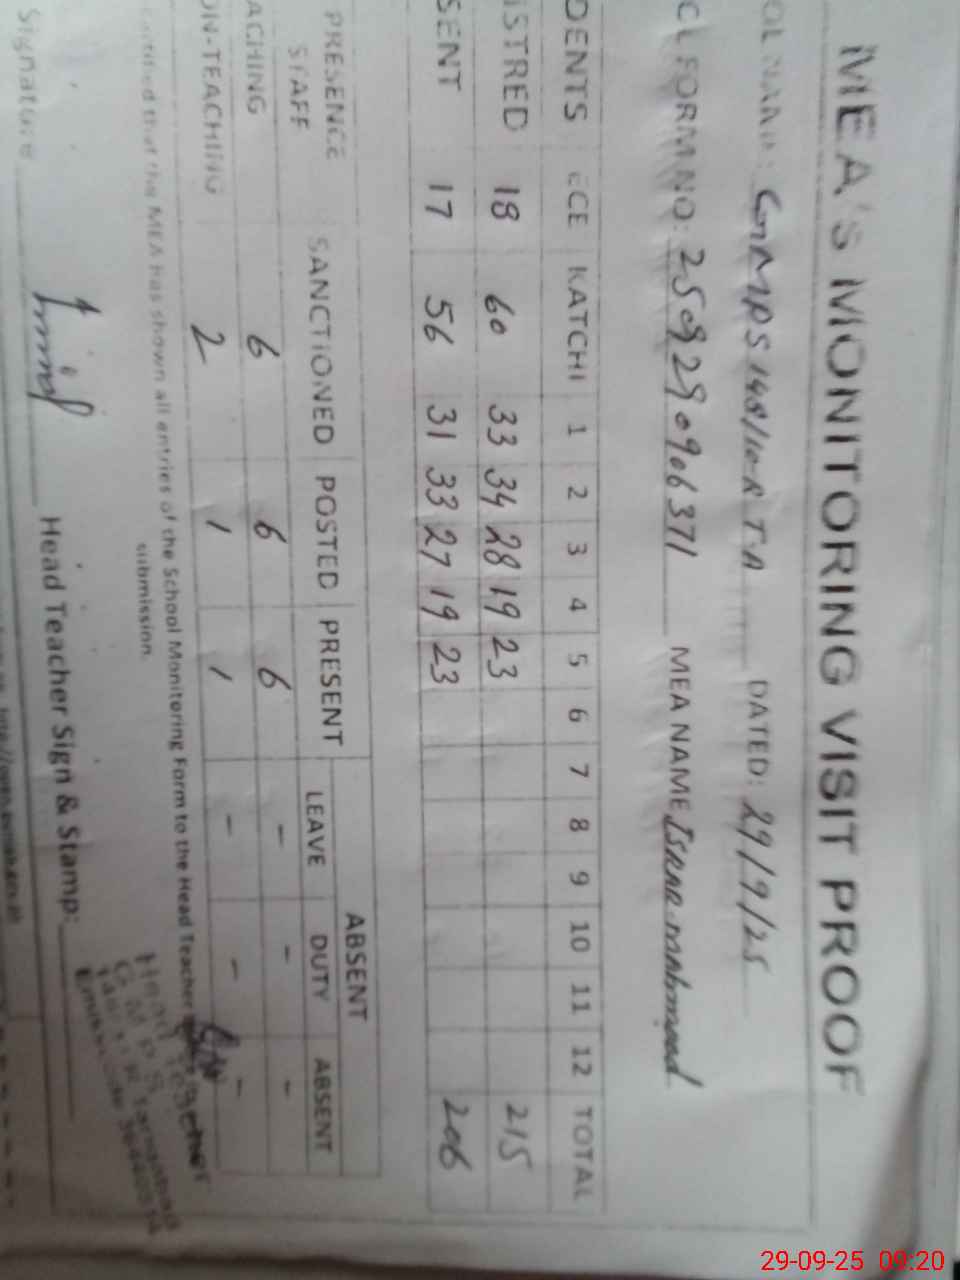 MEA'S MONITORING VISIT PROOF
OL NAME: GMPS 148/10-R T-A DATED: 29/9/25
CL FORM NO: 250929090906371 MEA NAME Israr Mahmood
DENTS ECE KATCHI 1 2 3 4 5 6 7 8 9 10 11 12 TOTAL
ISTRED 18 60 33 34 28 19 23 215
SENT 17 56 31 33 27 19 23 206
PRESENCE STAFF SANCTIONED POSTED PRESENT ABSENT
LEAVE DUTY ABSENT
ACHING 6 6 6 - - -
ON-TEACHING 2 1 1 - - -
that the MEA has shown all entries of the School Monitoring Form to the Head Teacher
submission.
Signature Head Teacher Sign & Stamp:
Head Teacher
G M P S
29-09-25 09:20